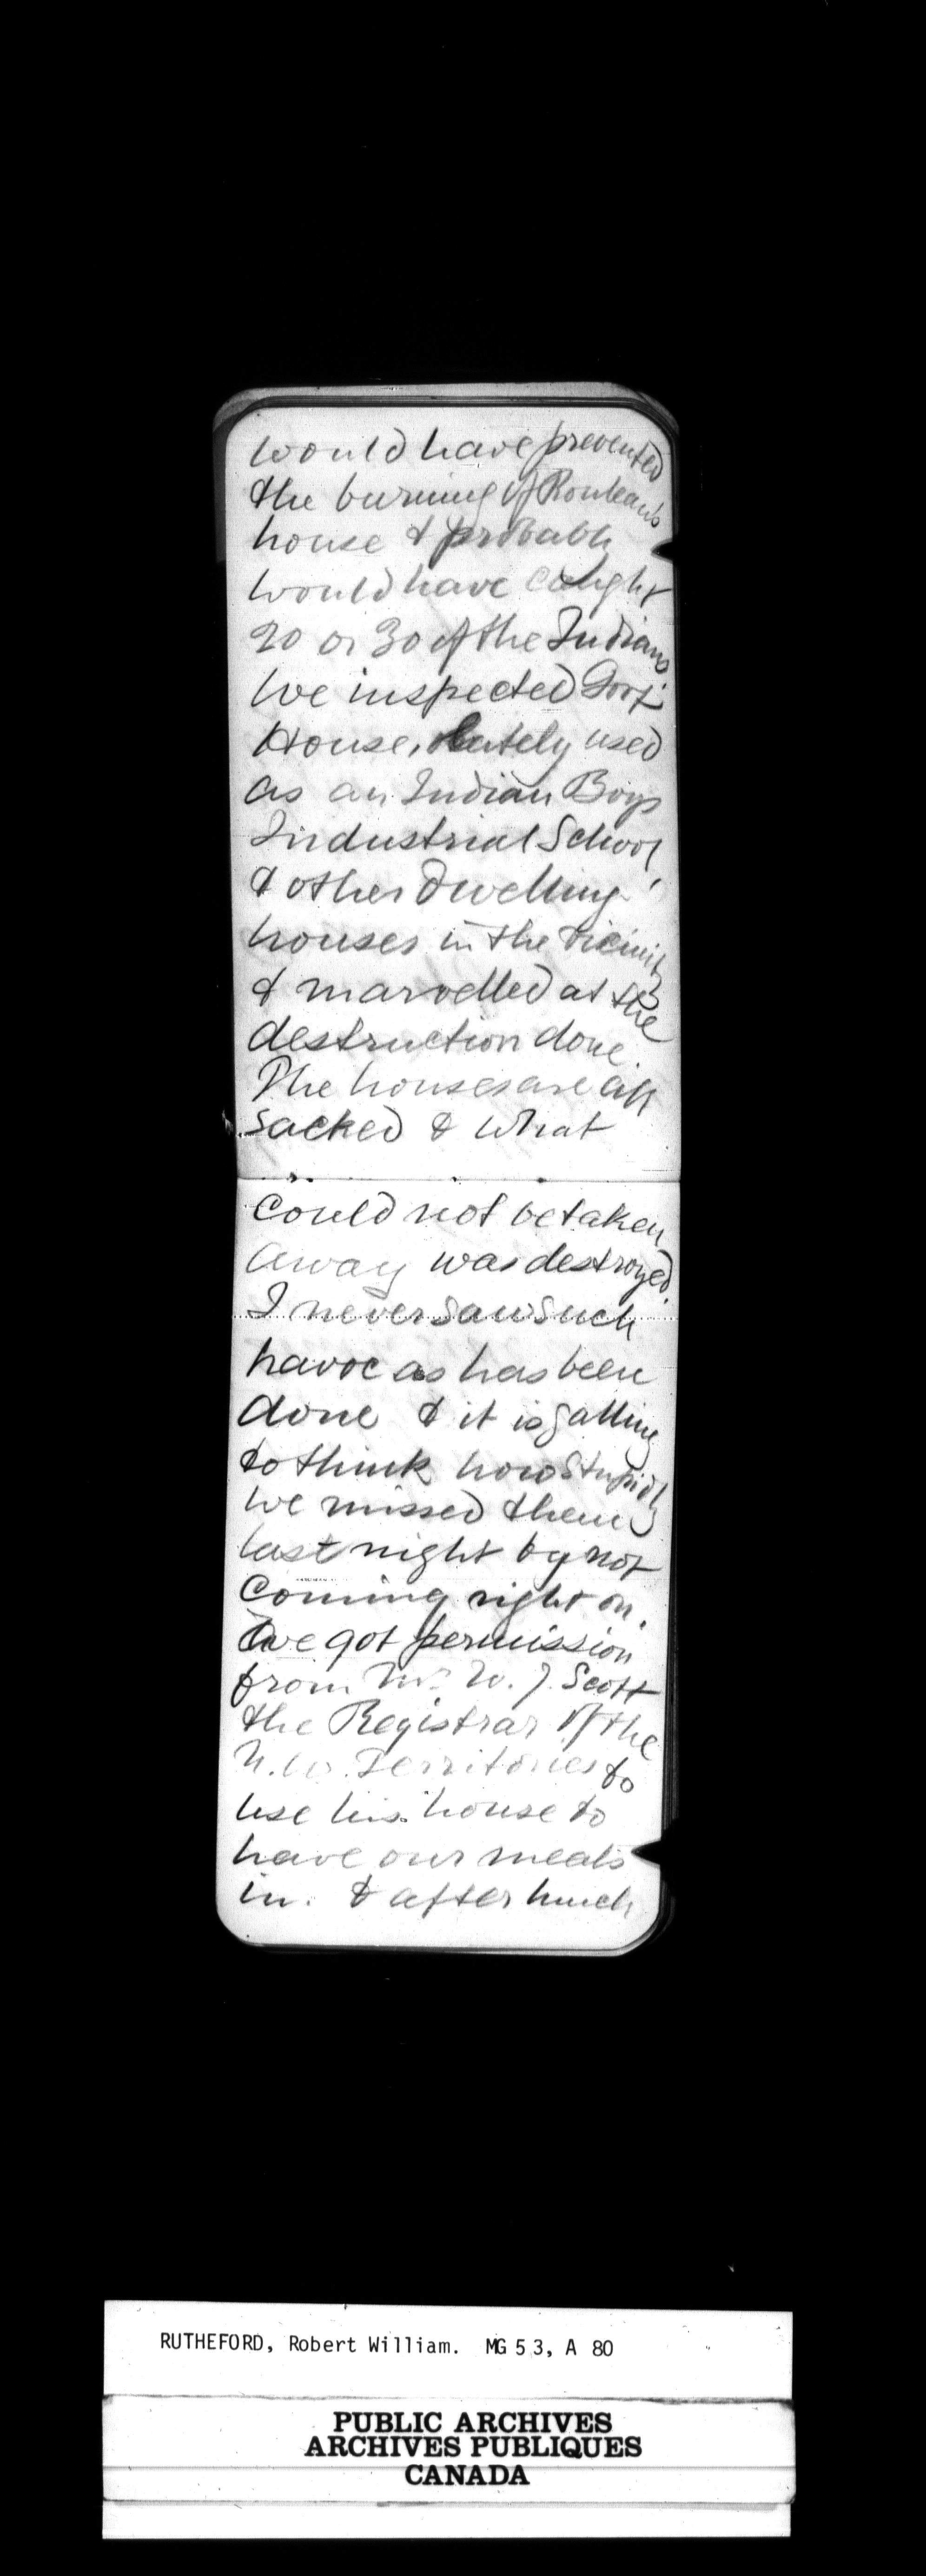 would have prevented
the burning of Rouleau's
house & probably
would have caught
20 or 30 of the Indians
We inspected Govt
House, lately used
as an Indian Boys
Industrial School,
& other dwelling
houses in the vicinity
& marvelled at the
destruction done.
The houses are all
sacked & what
could not be taken
away was destroyed.
I never saw such
havoc as has been
done & it is galling
to think how stupidly
we missed them
last night by not
coming right on.
We got permission
from Mr. W. J. Scott
the Registrar of the
N.W. Territories to
use his house to
have our meals
in. & after lunch
RUTHEFORD, Robert William. MG 53, A 80
PUBLIC ARCHIVES
ARCHIVES PUBLIQUES
CANADA